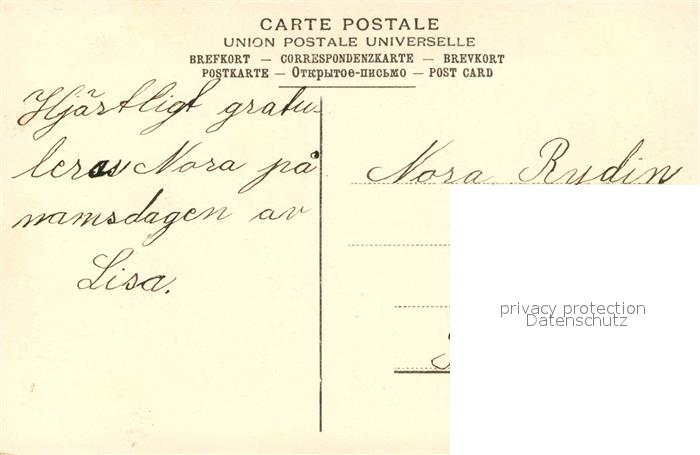 CARTE POSTALE
UNION POSTALE UNIVERSELLE
BREFKORT — CORRESPONDENZKARTE — BREVKORT
POSTKARTE — Открытое-письмо — POST CARD
Hjärtligt gratu-
leras Nora på
namsdagen av
Lisa.
Nora Rydin
privacy protection
Datenschutz